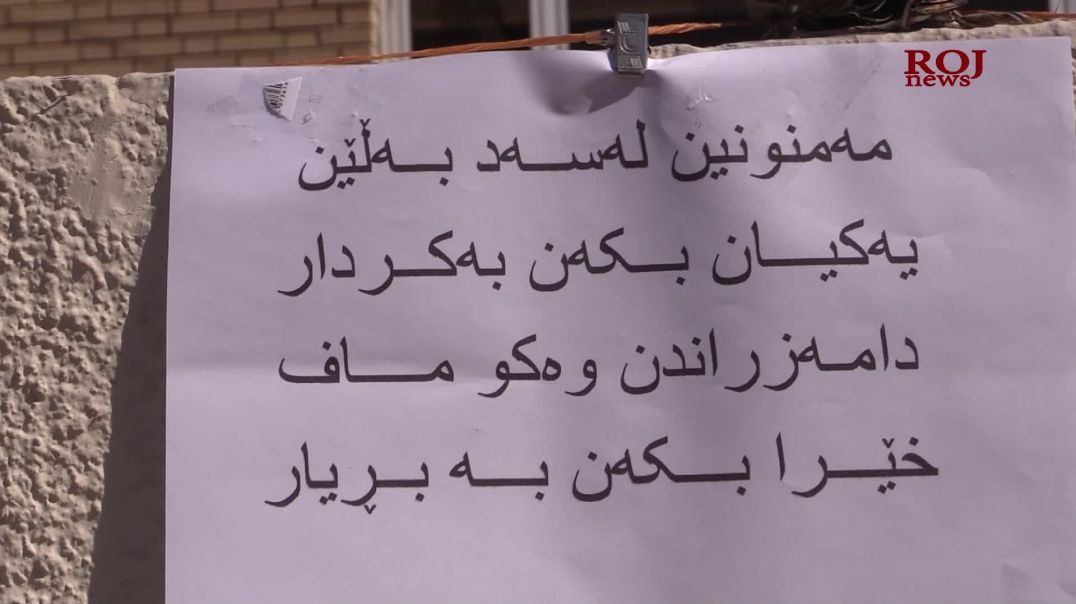 ROJ
news
مەمنونین لەسەد بەڵێن
یەکیان بکەن بەکردار
دامەزراندن وەکو ماف
خێرا بکەن بە بڕیار